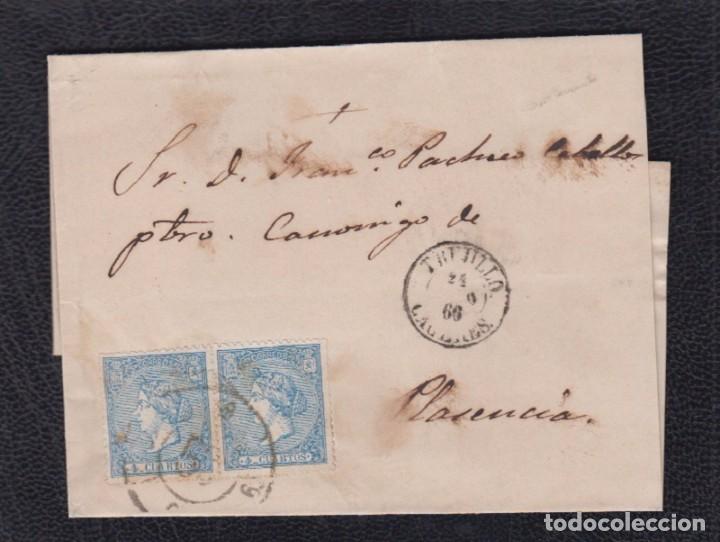 Sr. D. Franco. Pacheco
pbro. Canonigo de
TRUJILLO.
24
9
66
CACERES.
Plasencia.
CORREOS
4 CUARTOS
4 CUARTOS
todocoleccion